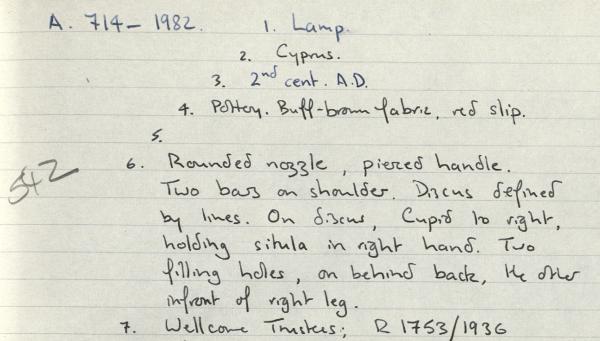 A. 714 - 1982. 1. Lamp.
2. Cyprus.
3. 2nd cent. A.D.
4. Pottery. Buff-brown fabric, red slip.
5.
6. Rounded nozzle, pierced handle.
542
Two bars on shoulder. Discus defined
by lines. On discus, Cupid to right,
holding situla in right hand. Two
filling holes, on behind back, the other
infront of right leg.
7. Wellcome Trustees; R 1753/1936